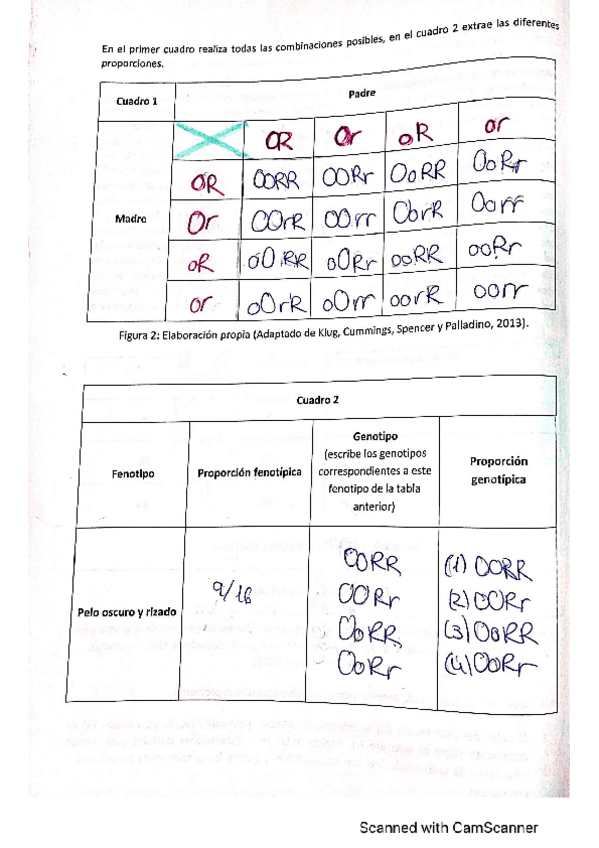 En el primer cuadro realiza todas las combinaciones posibles, en el cuadro 2 extrae las diferentes
proporciones.
Cuadro 1 Padre
OR Or oR or
Madre
OR OORR OORr OoRR OoRr
Or OOrR OOrr OorR Oorr
oR oORR oORr ooRR ooRr
or oOrR oOrr oorR oorr
Figura 2: Elaboración propia (Adaptado de Klug, Cummings, Spencer y Palladino, 2013).
Cuadro 2
Fenotipo Proporción fenotípica Genotipo (escribe los genotipos correspondientes a este fenotipo de la tabla anterior) Proporción genotípica
Pelo oscuro y rizado 9/16
OORR (1) OORR
OORr (2) OORr
OoRR (3) OoRR
OoRr (4) OoRr
Scanned with CamScanner